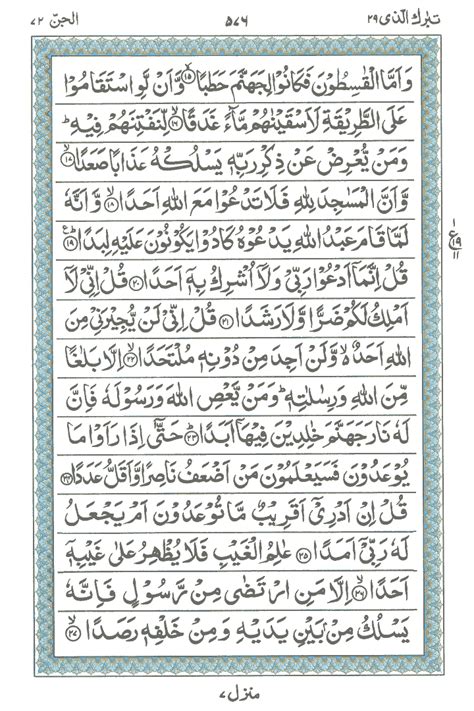 تبٰرك الذی ۲۹
۵۷۶
الجنّ ۷۲
وَاَمَّا الْقٰسِطُوْنَ فَكَانُوْا لِجَهَنَّمَ حَطَبًا ۙ﴿۱۵﴾ وَّاَنْ لَّوِ اسْتَقَامُوْا
عَلَى الطَّرِيْقَةِ لَاَسْقَيْنٰهُمْ مَّآءً غَدَقًا ۙ﴿۱۶﴾ لِّنَفْتِنَهُمْ فِيْهِ ؕ
وَمَنْ يُّعْرِضْ عَنْ ذِكْرِ رَبِّهٖ يَسْلُكْهُ عَذَابًا صَعَدًا ۙ﴿۱۷﴾
وَّاَنَّ الْمَسٰجِدَ لِلّٰهِ فَلَا تَدْعُوْا مَعَ اللّٰهِ اَحَدًا ۙ﴿۱۸﴾ وَّاَنَّهٗ
لَمَّا قَامَ عَبْدُ اللّٰهِ يَدْعُوْهُ كَادُوْا يَكُوْنُوْنَ عَلَيْهِ لِبَدًا ؕ﴿۱۹﴾
قُلْ اِنَّمَاۤ اَدْعُوْا رَبِّيْ وَلَاۤ اُشْرِكُ بِهٖۤ اَحَدًا ﴿۲۰﴾ قُلْ اِنِّيْ لَاۤ
اَمْلِكُ لَكُمْ ضَرًّا وَّلَا رَشَدًا ﴿۲۱﴾ قُلْ اِنِّيْ لَنْ يُّجِيْرَنِيْ مِنَ
اللّٰهِ اَحَدٌ ۙ وَّلَنْ اَجِدَ مِنْ دُوْنِهٖ مُلْتَحَدًا ۙ﴿۲۲﴾ اِلَّا بَلٰغًا
مِّنَ اللّٰهِ وَرِسٰلٰتِهٖ ؕ وَمَنْ يَّعْصِ اللّٰهَ وَرَسُوْلَهٗ فَاِنَّ
لَهٗ نَارَ جَهَنَّمَ خٰلِدِيْنَ فِيْهَاۤ اَبَدًا ؕ﴿۲۳﴾ حَتّٰۤى اِذَا رَاَوْا مَا
يُوْعَدُوْنَ فَسَيَعْلَمُوْنَ مَنْ اَضْعَفُ نَاصِرًا وَّاَقَلُّ عَدَدًا ﴿۲۴﴾
قُلْ اِنْ اَدْرِيْۤ اَقَرِيْبٌ مَّا تُوْعَدُوْنَ اَمْ يَجْعَلُ
لَهٗ رَبِّيْۤ اَمَدًا ﴿۲۵﴾ عٰلِمُ الْغَيْبِ فَلَا يُظْهِرُ عَلٰى غَيْبِهٖۤ
اَحَدًا ۙ﴿۲۶﴾ اِلَّا مَنِ ارْتَضٰى مِنْ رَّسُوْلٍ فَاِنَّهٗ
يَسْلُكُ مِنْۢ بَيْنِ يَدَيْهِ وَمِنْ خَلْفِهٖ رَصَدًا ۙ﴿۲۷﴾
۱
ع ۱۹
۱۱
منزل ۷